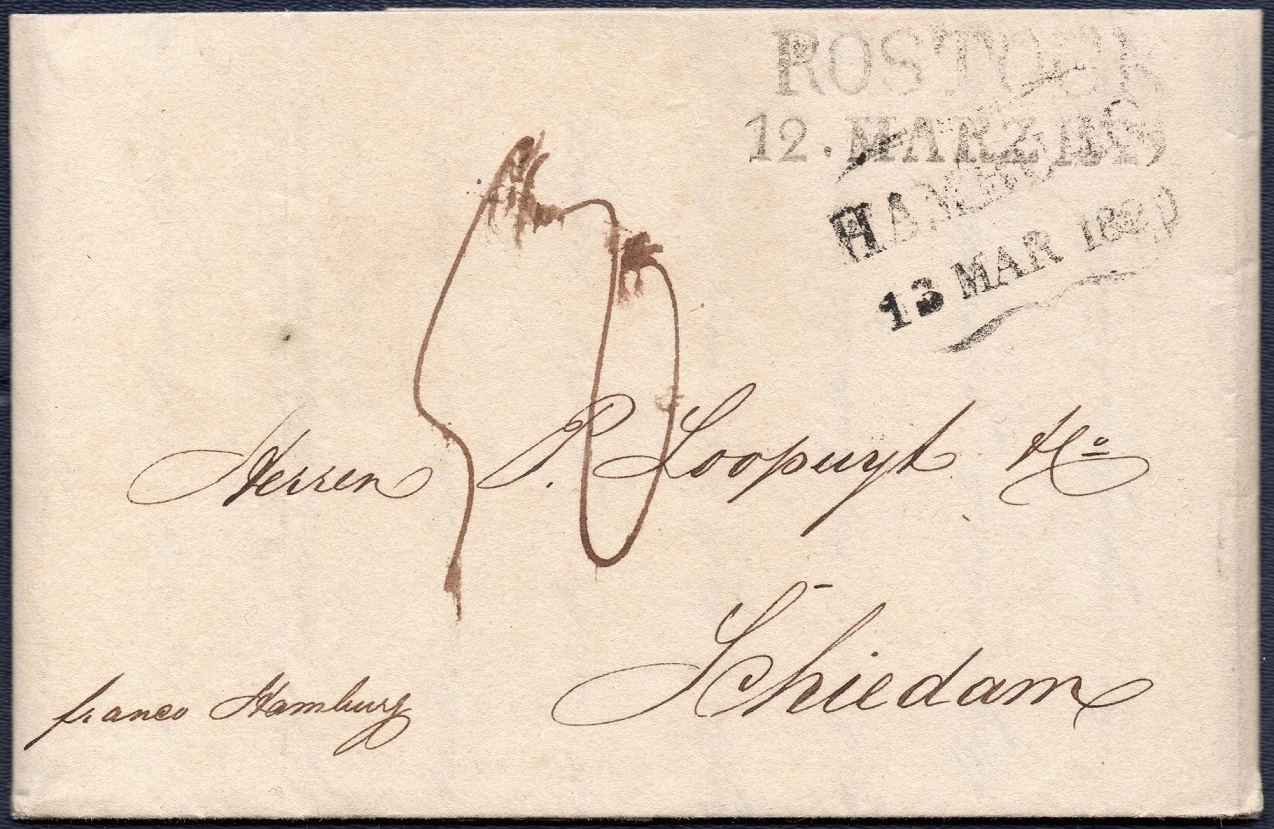 ROSTOCK
12. MARZ
HAMBURG
13 MAR
Herren P. Loopuyt
Schiedam
franco Hamburg